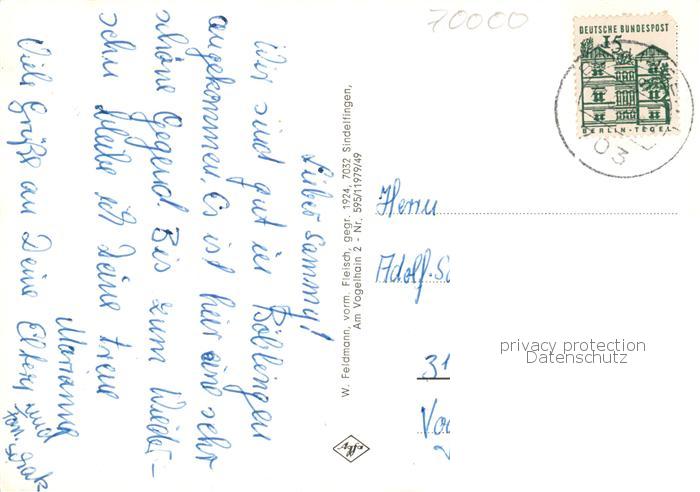 70000
DEUTSCHE BUNDESPOST
15
BERLIN-TEGEL
03
Lieber Sammy!
Wir sind gut in Böblingen
angekommen. Es ist hier eine sehr
schöne Gegend. Bis zum Wieder-
sehn bleibe ich Deine treue
Marianne
Viele Grüße an Deine Eltern und
W. Feldmann, vorm. Fleisch, gegr. 1924, 7032 Sindelfingen,
Am Vogelhain 2 - Nr. 595/11979/49
Herrn
Adolf
31
privacy protection
Datenschutz